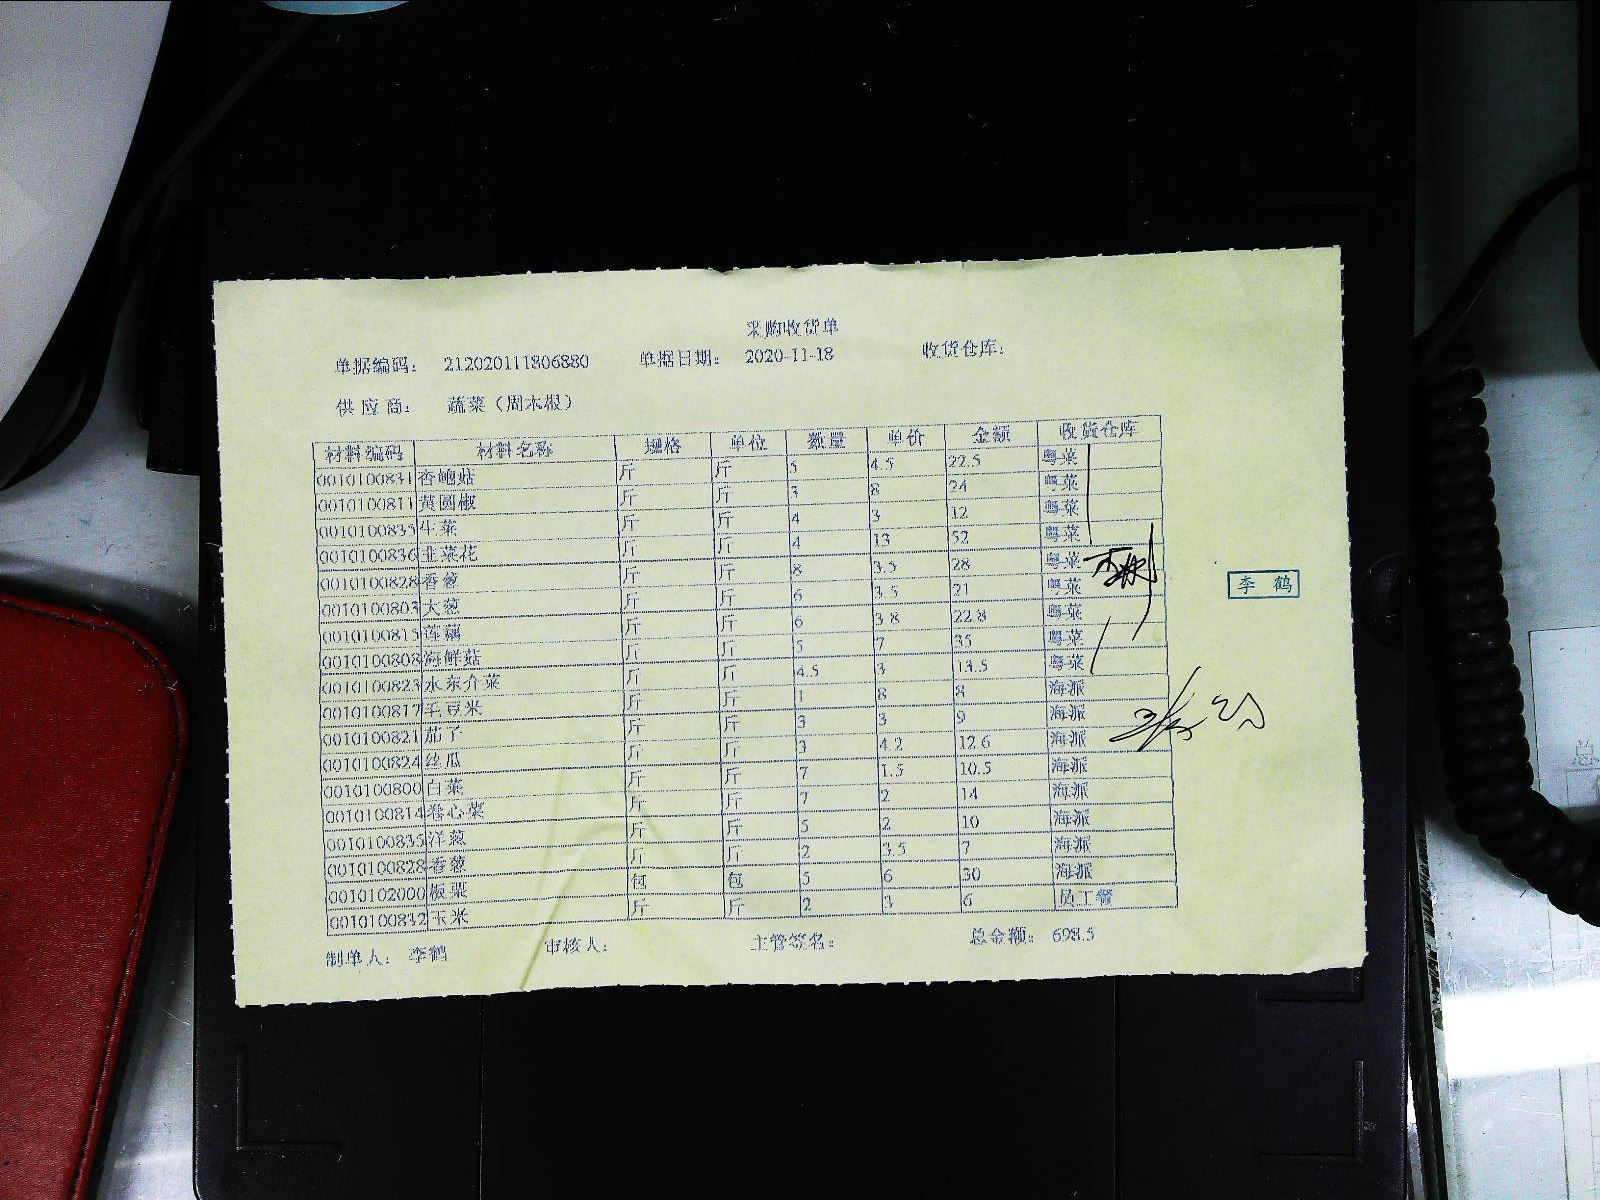 采购收货单
单据编码： 212020111806880 单据日期： 2020-11-18 收货仓库：
供应商： 蔬菜（周木根）
材料编码 材料名称 规格 单位 数量 单价 金额 收货仓库
0010100831 杏鲍菇 斤 斤 5 4.5 22.5 粤菜
0010100811 黄圆椒 斤 斤 3 8 24 粤菜
0010100835 生菜 斤 斤 4 3 12 粤菜
0010100836 韭菜花 斤 斤 4 13 52 粤菜
0010100828 香葱 斤 斤 8 3.5 28 粤菜
0010100803 大葱 斤 斤 6 3.5 21 粤菜
0010100815 莲藕 斤 斤 6 3.8 22.8 粤菜
0010100808 海鲜菇 斤 斤 5 7 35 粤菜
0010100823 水东介菜 斤 斤 4.5 3 13.5 粤菜
0010100817 毛豆米 斤 斤 1 8 8 海派
0010100821 茄子 斤 斤 3 3 9 海派
0010100824 丝瓜 斤 斤 3 4.2 12.6 海派
0010100800 白菜 斤 斤 7 1.5 10.5 海派
0010100814 卷心菜 斤 斤 7 2 14 海派
0010100835 洋葱 斤 斤 5 2 10 海派
0010100828 香葱 斤 斤 2 3.5 7 海派
0010102000 板栗 包 包 5 6 30 海派
0010100832 玉米 斤 斤 2 3 6 员工餐
李鹤
制单人： 李鹤 审核人： 主管签名： 总金额： 698.5
总